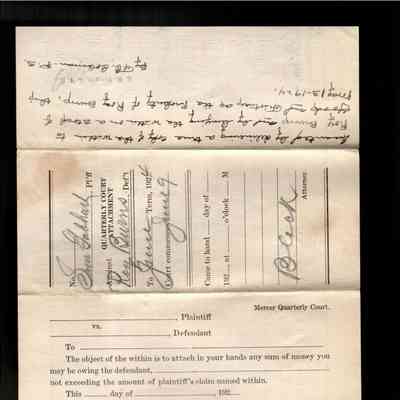 Executed by delivering a true copy of the within to
Roy Burns and by levying the within on a stock of
goods and fixtures as the property of Roy Burns, this
May 13-1924.
By
No.
Sam Gabhart PLff
QUARTERLY COURT
ATTACHMENT
Against
Roy Burns, Def't
To June Term, 1924
Court commences June 9
Came to hand day of
192 at o'clock M
Black
Attorney
Mercer Quarterly Court.
, Plaintiff
vs.
, Defendant
To
The object of the within is to attach in your hands any sum of money you
may be owing the defendant,
not exceeding the amount of plaintiff's claim named within.
This day of , 192